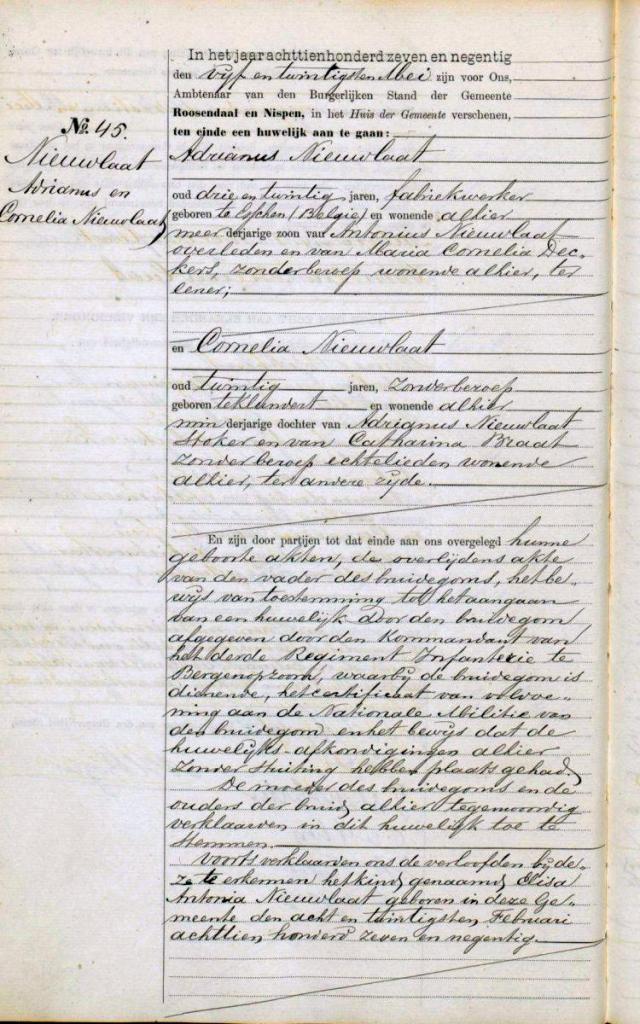 In het jaar achttienhonderd zeven en negentig
den vijf en twintigsten Mei zijn voor Ons,
Ambtenaar van den Burgerlijken Stand der Gemeente
Roosendaal en Nispen, in het Huis der Gemeente verschenen,
ten einde een huwelijk aan te gaan:
No. 45.
Nieuwlaat
Adrianus en
Cornelia Nieuwlaat
Adrianus Nieuwlaat
oud drie en twintig jaren, fabriekwerker
geboren te Esschen (Belgie) en wonende alhier
meer derjarige zoon van Antonius Nieuwlaat
overleden en van Maria Cornelia Dec-
kers, zonder beroep wonende alhier, ter
eener;
en Cornelia Nieuwlaat
oud twintig jaren, Zonder beroep
geboren te Klundert en wonende alhier
min derjarige dochter van Adrianus Nieuwlaat
Stoker en van Catharina Braat
zonder beroep echtelieden wonende
alhier, ter andere zijde.
En zijn door partijen tot dat einde aan ons overgelegd hunne
geboorte akten, de overlijdens akte
van den vader des bruidegoms, het be-
wijs van toestemming tot het aangaan
van een huwelijk door den bruidegom
afgegeven door den Kommandant van
het derde Regiment Infanterie te
Bergenopzoom, waarbij de bruidegom is
dienende, het certificaat van voldoe-
ning aan de Nationale Militie van
den bruidegom en het bewijs dat de
huwelijks-afkondigingen alhier
zonder stuiting hebben plaats gehad.
De moeder des bruidegoms en de
ouders der bruid alhier tegenwoordig
verklaarden in dit huwelijk toe te
stemmen.
Voorts verklaarden ons de verloofden bij de-
ze te erkennen het kind genaamd Elisa
Antonia Nieuwlaat geboren in deze Ge-
meente den acht en twintigsten Februari
achttien honderd zeven en negentig.